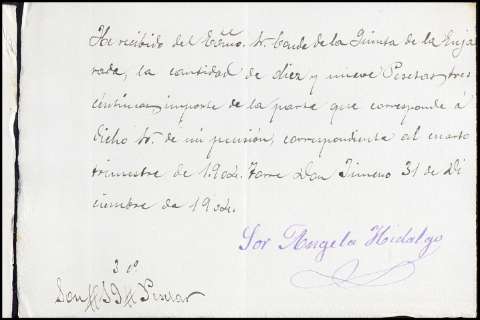 He recibido del Exmo. Sr. Conde de la Quinta de la Enja
rada, la cantidad de diez y nueve Pesetas, tres
centimos, importe de la parte que corresponde á
dicho Sr. de mi pensión, correspondiente al cuarto
trimestre de 1.904. Torre Don Jimeno 31 de Di
ciembre de 1904.
Sor Angela Hidalgo
Son # 19 # Pesetas